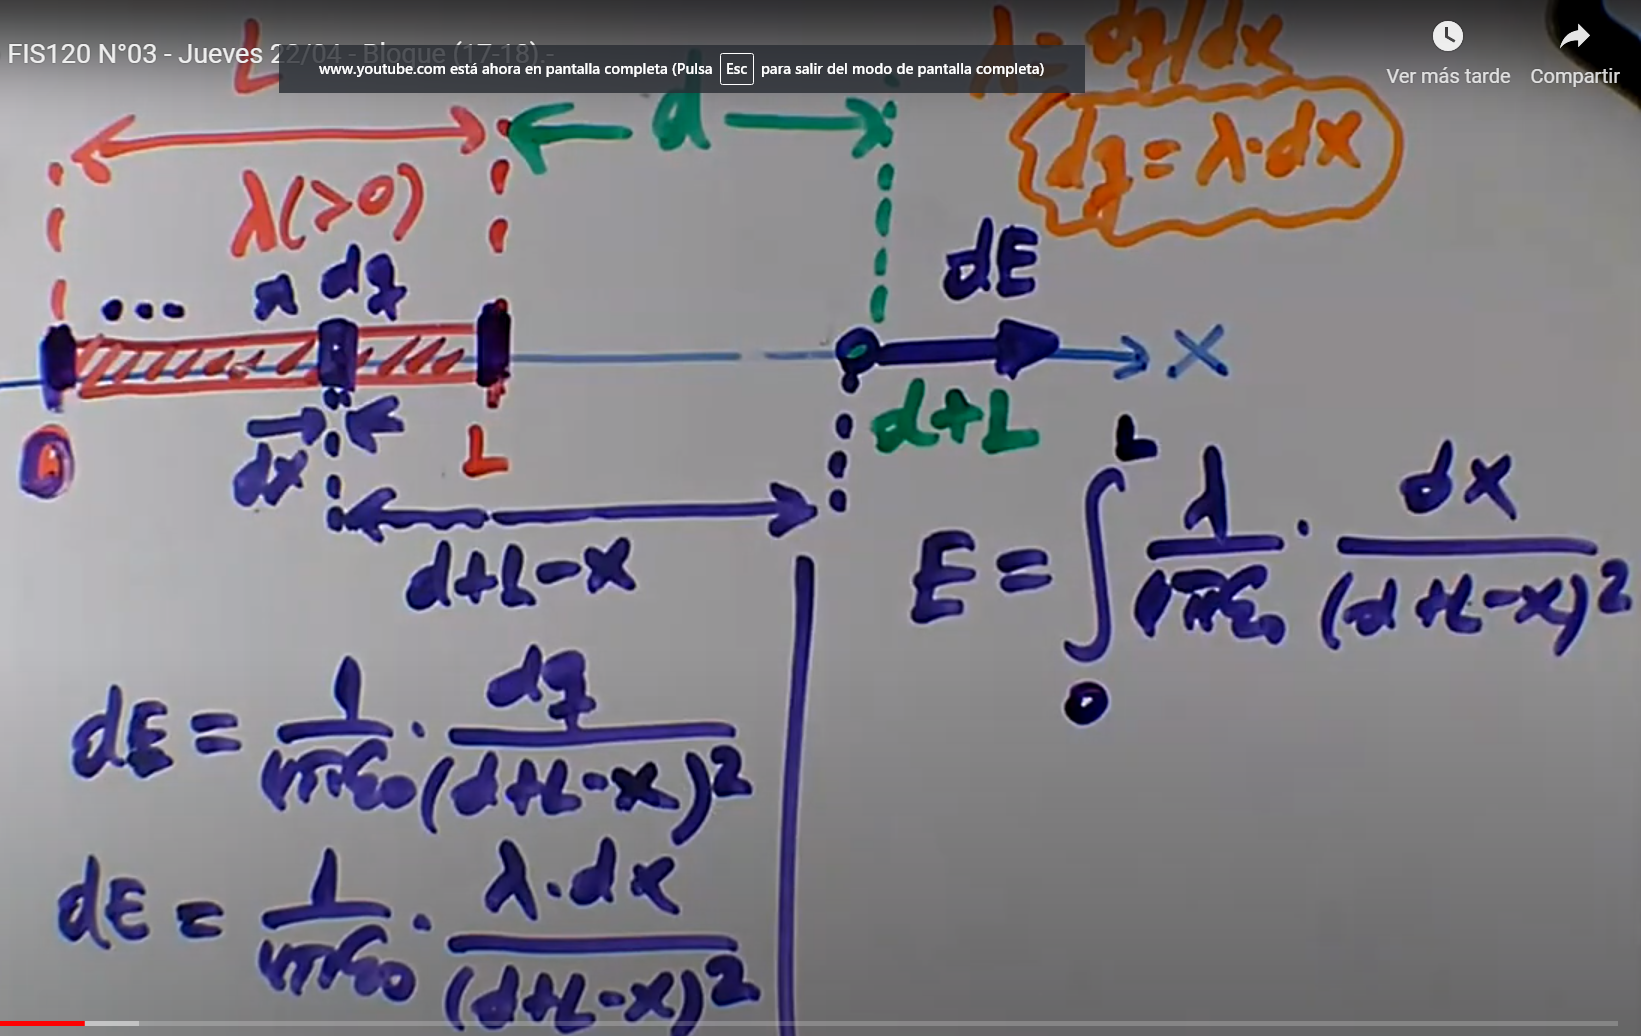 FIS120 N°03 - Jueves 22/04 - Bloque (17-18).-
www.youtube.com está ahora en pantalla completa (Pulsa Esc para salir del modo de pantalla completa)
Ver más tarde Compartir
L
d
λ = dq/dx
dq = λ·dx
λ(>0)
... x dq
dE
X
0
dx
L
d+L
d+L-x
E = ∫₀ᴸ λ/4πε₀ · dx/(d+L-x)²
dE = 1/4πε₀ · dq/(d+L-x)²
dE = 1/4πε₀ · λ·dx/(d+L-x)²